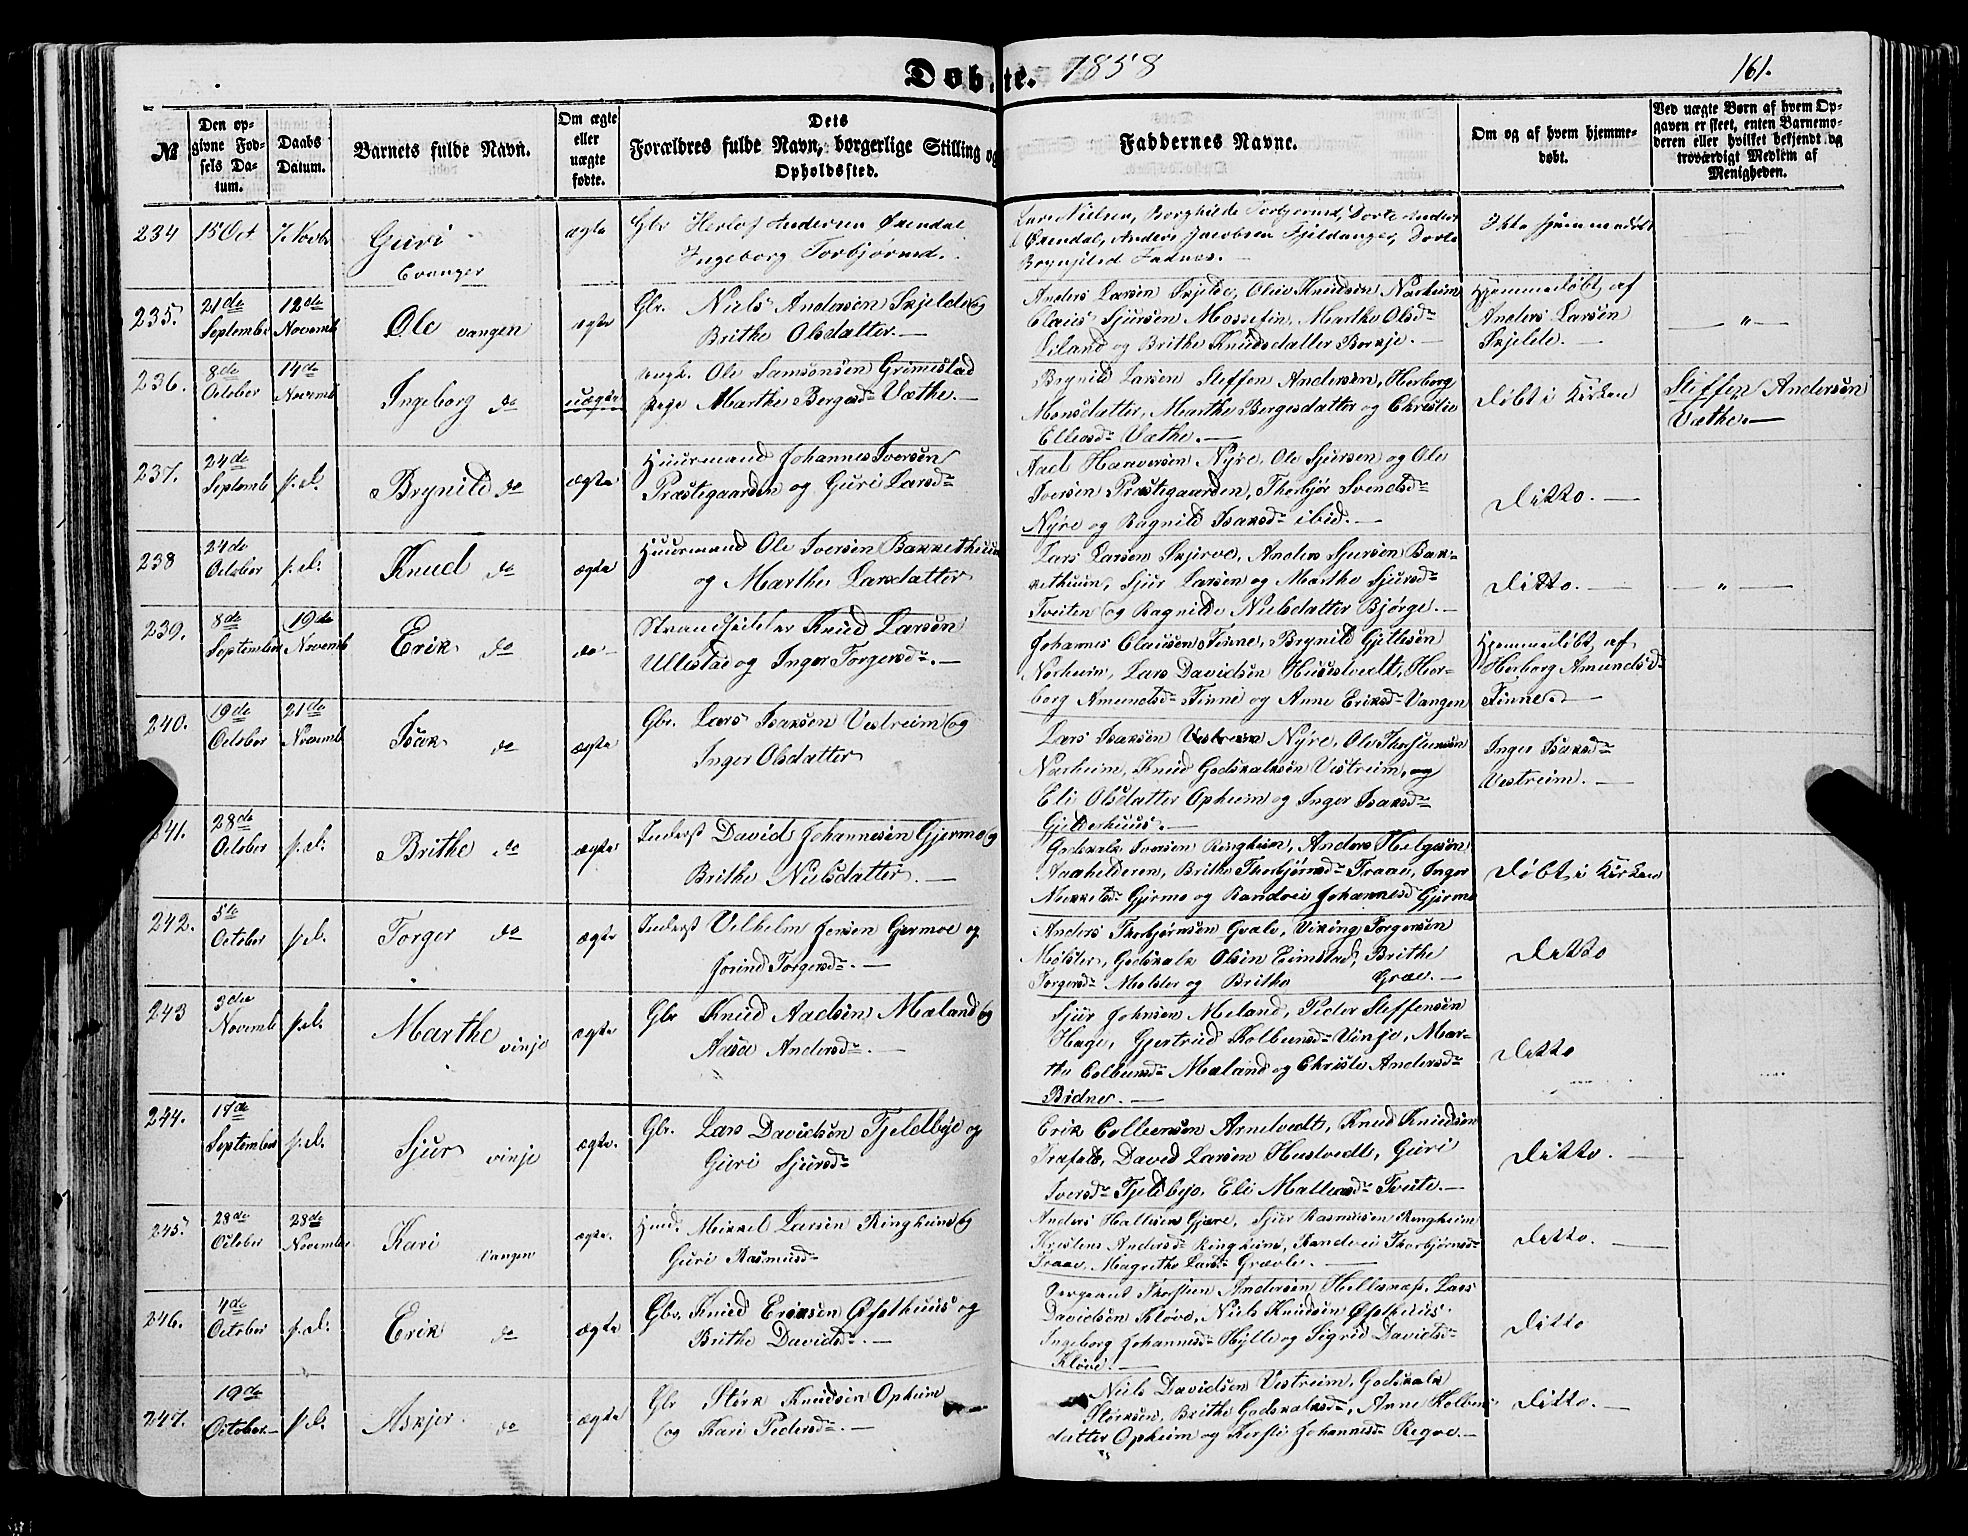 Døbte. 1858
161.
№
Den opgivne Fødsels Datum.
Daabs Datum.
Barnets fulde Navn.
Om ægte eller uægte fødte.
Dets Forældres fulde Navn, borgerlige Stilling og Opholdssted.
Faddernes Navne.
Om og af hvem hjemmedøbt.
Ved uægte Børn af hvem Opgaven er skeet, enten Barnemoderen eller hvilket bekjendt og troværdigt Medlem af Menigheden.
234 15 Oct 7 Novbr Guri Evanger ægte
Gbr Herlof Andersen Øxendal
Ingeborg Torbjørnsd.
Lars Nielsen, Borghilde Torbjørnsd, Dorte Anders
Øxendal, Anders Jacobsen Fjeldanger, Dorte
Brynjelsd Fadnes.
Ikke hjemmedøbt
235. 21de September 12de Novemb Ole vangen ægte
Gbr. Niels Andersen Skjelde og
Brithe Olsdatter. —
Anders Larsen Skjelde, Oliv Knudsen Narheim
Claus Sjursen Mossefin, Marthe Olsd
Eiland og Brithe Knudsdatter Borkje. —
Hjemmedøbt af
Anders Larsen
Skjelde. —
— " —
236. 8de October 14de Novemb Ingeborg do uægte
Ungk. Ole Samsonsen Grimestad
Pige Marthe Bergesd Væthe. —
Brynild Larsen Steffen Andersen, Herborg
Monsdatter, Marthe Bergesdatter og Christie
Ellevsd Væthe. —
Døbt i Kirken
Steffen Andersen
Væthe. —
237. 24de Septemb s. d. Brynild do ægte
Huurmand Johannes Iversen
Præstegaarden og Guri Larsd
Aad Haaversen Nyre, Ole Sjursen og Ole
Iversen Præstegaarden, Thorbjør Svendsd
Nyre og Ragnild Isaksd ibid. —
Ditto. —
238 24de October s. d. Knud do ægte
Huurmand Ole Iversen Bakkethuun
og Marthe Larsdatter
Lars Larsen Skjerve, Anders Sjursen Bak-
kethuun, Sjur Larsen og Marthe Sjursd
Tveiten og Ragnilde Nielsdatter Bjørge. —
Ditto. —
" —
239. 8de September 19de Novemb Erik do do
Strandsidder Knud Larsen
Ullestad og Inger Torgersd. —
Johannes Clausen Finne, Brynild Gjetlesen
Norheim, Lars Davidsen Husestvedt, Her-
borg Amundsd Finne og Anne Eriksd Vangen
Hjemmedøbt af
Herborg Amundsd
Finne. —
240. 19de October 21de Novemb Isak do ægte
Gbr. Lars Isaksen Vestreim og
Inger Olsdatter
Lars Isaksen Nyre, Ole Thorstensen
Narheim, Knud Godskalksen Vestreim, og
Eli Olsdatter Opheim og Inger Isaksd
Inger Isaksd
Vestreim. —
241. 28de October s. d. Brithe do ægte
Inderst David Johannesen Gjerme og
Brithe Nielsdatter. —
Godskalk Iversen Ringheim, Anders Helgesen
Brithe Thorbjørnsd Traae, Inger
Mikkelsd Gjerme og Randvei Johannesd Gjerme
Døbt i Kirken
242. 5te October s. d. Torger do ægte
Inderst Vilhelm Jensen Gjermoe og
Jorind Torgersd. —
Anders Thorbjørnsen Græe, Viking Torgersen
Mølster, Godskalk Olsen Eimstad, Brithe
Torgersd Mølster og Brithe Græe. —
Ditto
243 3die Novemb s. d. Marthe vinje ægte
Gbr Knud Aadsen Mæland og
Aase Andersd. —
Sjur Johnsen Meland, Peder Steffensen
Hage, Gjertrud Kolbensd Vinje, Mar-
the Colbensd Mæland og Christie Andersd
Bidne. —
Ditto
244. 17de September s. d. Sjur vinje ægte.
Gbr. Lars Davidsen Fjeldbye og
Guri Sjursd
Erik Colbensen Arnetvedt, Knud Knudsen
David Larsen Hustvedt, Guri
Iversd Fjeldbye, Eli Matteasd Tveite. —
Ditto. —
245. 28de October 28de November Kari vangen ægte.
Mikkel Larsen Ringheim og
Guri Rasmusd
Anders Hallesen Gjære, Sjur Rasmusen Ringheim
Kristens Andersd Ringheim, Randvei Thorbjørnsd
Traae, Magrethe Larsd Grævle. —
Ditto. —
246. 4de October s. d. Erik do ægte
Gbr. Knud Eriksen Øfsthuus og
Brithe Davidsd. —
Sergeant Thorsten Andersen Hellesnæs, Lars
Davidsen Kløve, Niels Knudsen Øfsthuus.
Ingeborg Johannesd Hylle og Sigrid Davidsd
Kløve. —
Ditto
247. 19de October. s. d. Askjer do ægte
Gbr Størk Knudsen Opheim
og Kari Pedersd. —
Niels Davidsen Vestreim, Godskalk
Størksen, Brithe Godskalksd, Anne Kolbens-
datter Opheim og Kirsti Johannesd Regve. —
Ditto. —